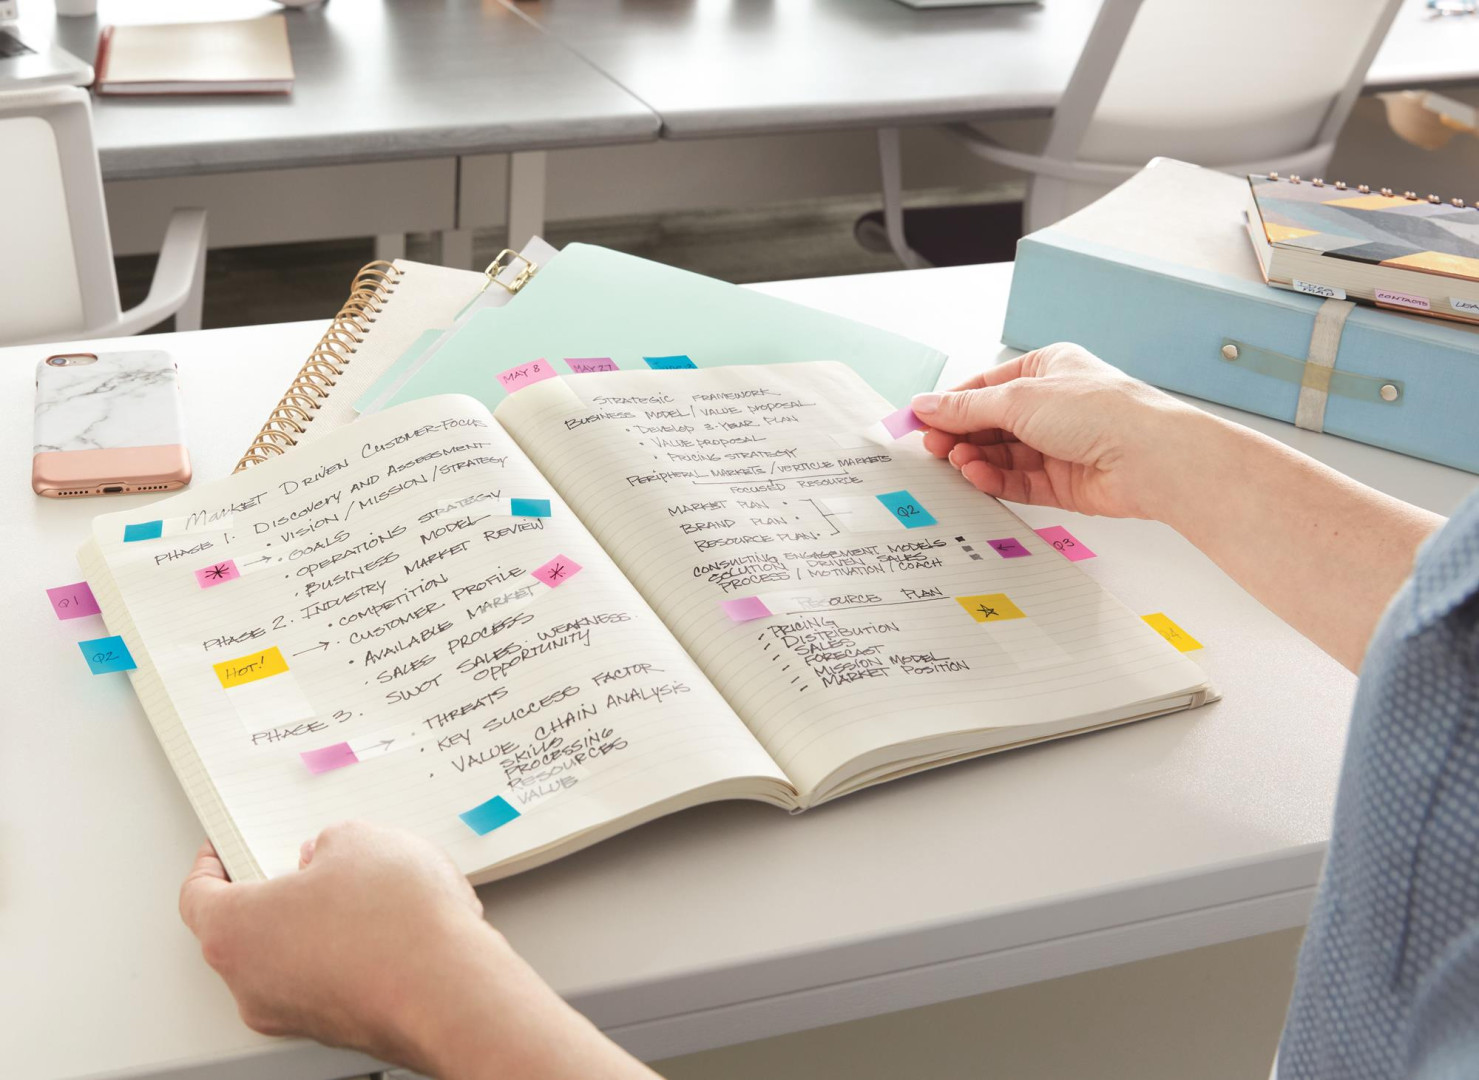 MAY 8
MAY 27
Market Driven Customer-Focus
PHASE 1. DISCOVERY AND ASSESSMENT
• VISION / MISSION / STRATEGY
→ • GOALS
• OPERATIONS STRATEGY
• BUSINESS MODEL
PHASE 2. INDUSTRY MARKET REVIEW
• COMPETITION
HOT! → • CUSTOMER PROFILE
• AVAILABLE MARKET
• SALES PROCESS
SWOT SALES. WEAKNESS.
OPPORTUNITY
PHASE 3. • THREATS
• KEY SUCCESS FACTOR
• VALUE CHAIN ANALYSIS
SKILLS
PROCESSING
RESOURCES
VALUE
Q1
Q2
STRATEGIC FRAMEWORK
BUSINESS MODEL / VALUE PROPOSAL
• DEVELOP 3-YEAR PLAN
• VALUE PROPOSAL
• PRICING STRATEGY
PERIPHERAL MARKETS / VERTICLE MARKETS
FOCUSED RESOURCE
MARKET PLAN •
BRAND PLAN • Q2
RESOURCE PLAN •
CONSULTING ENGAGEMENT MODELS
SOLUTION DRIVEN SALES
PROCESS / MOTIVATION / COACH
RESOURCE PLAN
- PRICING
- DISTRIBUTION
- SALES
- FORECAST
- MISSION MODEL
- MARKET POSITION
Q3
Q4
CONTACTS